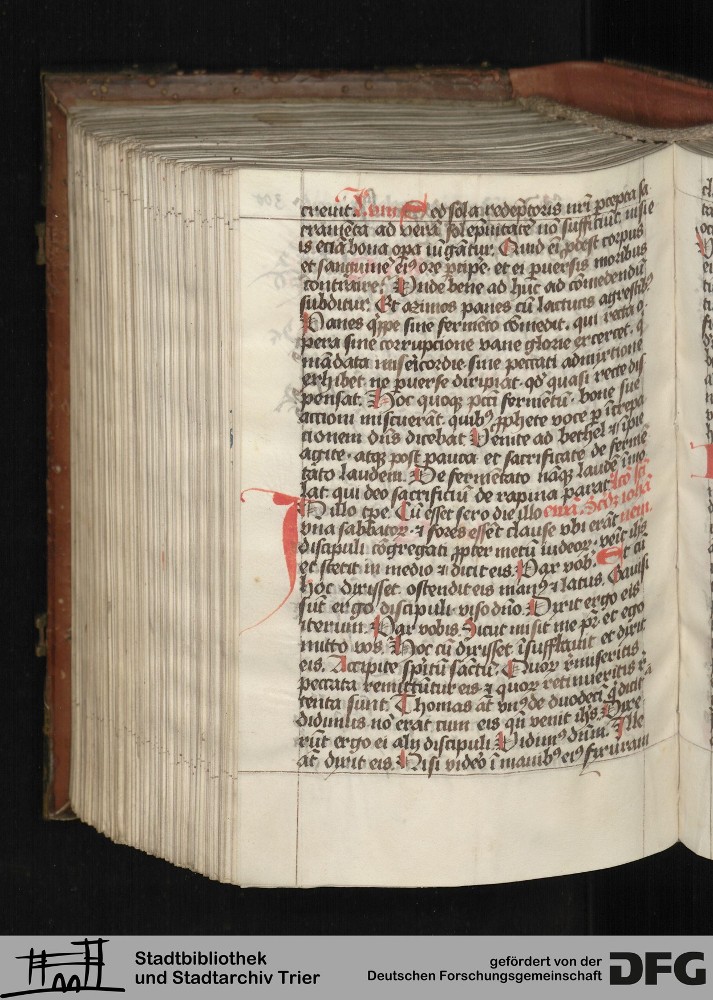 creuit. Sed sola redeptoris nri pcepta sa
crameta ad vera solepnitate no sufficiut, nisi e
is etia bona opa iugatur. Quid ei pdest corpus
et sanguine ei9 ore pcipe. et ei puersis moribus
contraire. Unde bene ad huc ad comedendu
subditur. Et azimos panes cu lactucis agrestib9
Panes qppe sine fermeto comedit. qui recta o
pera sine corrupcione vane glorie exercet. q
madata misericordie. sine peccati admixtione
exhibet. ne puerse diripiat. qd quasi recte dis
pensat. Hoc quoqz pcti fermetu. bone sue
actioni miscuerat. quib9 pphete voce p icrepa
tionem dns dicebat. Venite ad bethel et ipie
agite. atqz post pauca. et sacrificate de ferme
tato laudem. De fermetato naqz laude imo
lat qui deo sacrificiu de rapina parat. Lco sci
In illo tpe. Cu esset sero die illo ewa. Scdz ioha
vna sabbator. et fores esset clause vbi erat nem.
discipuli cogregati ppter metu iudeor. veit ihs
et stetit in medio et dicit eis. Pax vob. Et cu
hoc dixisset. ostendit eis man9 et latus. Gauisi
sut ergo discipuli viso dno. Dixit ergo eis
iterum. Pax vobis. Sicut misit me pr. et ego
mitto vos. Hoc cu dixisset isufflauit et dixit
eis. Accipite spitu sactu. Quor remiseritis
peccata remittutur eis et quor retinueritis re
tenta sunt. Thomas at vn9 de duodeci q dicit
didimus no erat cum eis qn venit ihs. Dixe
rut ergo ei alij discipuli. Vidim9 dnm. Ille
at dixit eis. Nisi video i manib9 ei9 fixuram
Stadtbibliothek
und Stadtarchiv Trier
gefördert von der
Deutschen Forschungsgemeinschaft
DFG